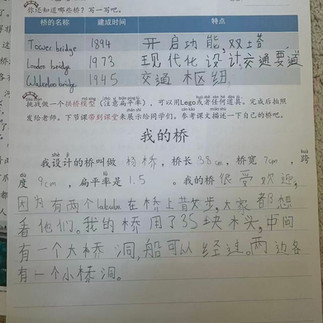 你还知道哪些桥?写一写吧。
桥的名称 建成时间 特点
Tower bridge 1894 开启功能,双塔
London bridge 1973 现代化设计交通要道
Waterloo bridge 1945 交通枢纽
挑战做一个拱桥模型(注意扁平率),可以用Lego或者任何道具。完成后拍照
发给老师。下节课带到课堂来展示给同学们。参考课文描述一下自己的桥吧。
我的桥
我设计的桥叫做 桥,桥长38cm,桥宽7cm,跨
度9cm,扁平率是1.5。我的桥很受欢迎,
因为有两个labubu在桥上散步,大家都想
看他们。我的桥用了35块木头,中间
有一个大桥洞,船可以经过。两边各
有一个小桥洞。